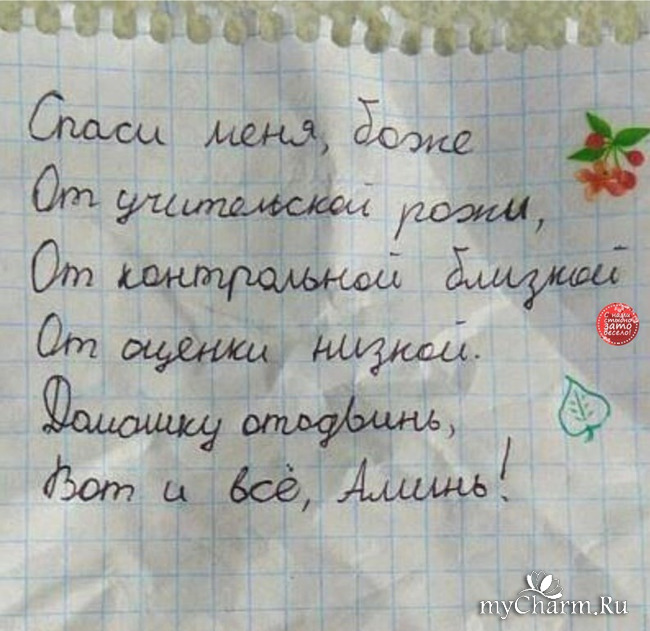 Спаси меня, боже
От учительской рожи,
От контрольной близкой
От оценки низкой.
Домашку отодвинь,
Вот и всё, Аминь!
С нами
стыдно,
зато
весело!
myCharm.Ru